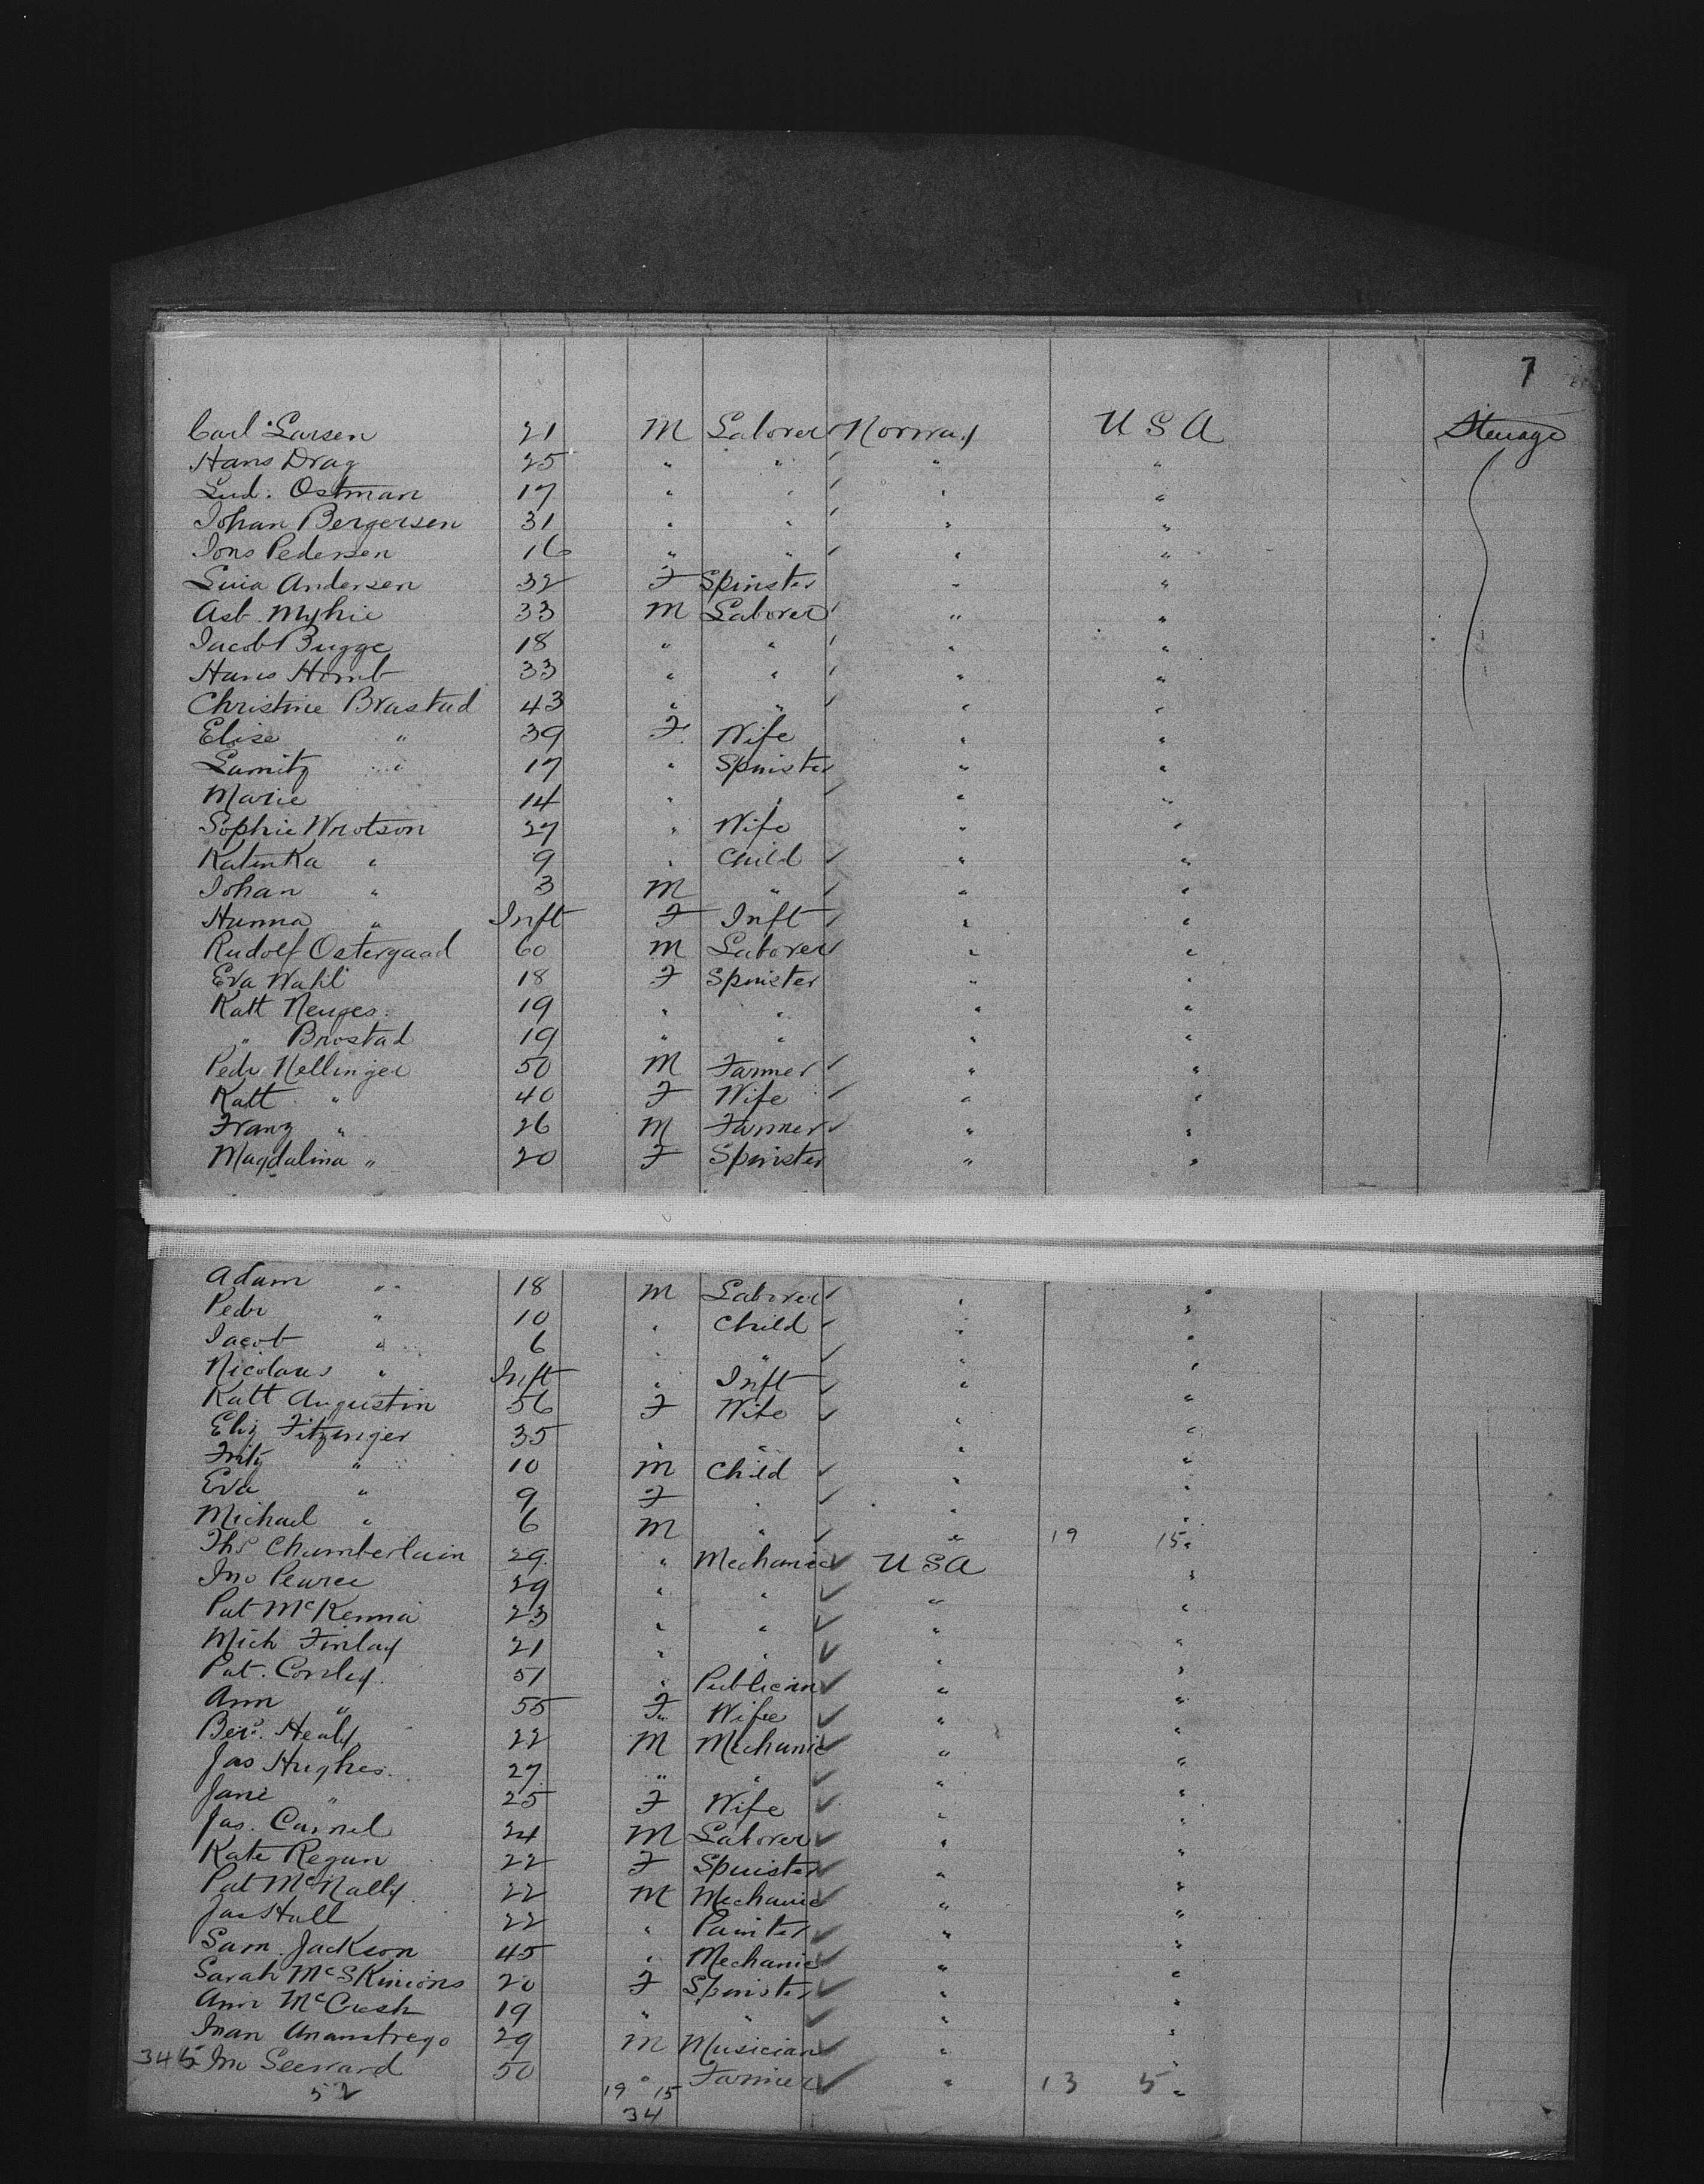 7
Carl Larsen 21 M Laborer Norway U S A Steerage
Hans Drag 25 " " " "
Lud. Ostman 17 " " " "
Johan Bergersen 31 " " " "
Jons Pedersen 16 " " " "
Andersen 32 F Spinster " "
Ast. Myhie 33 M Laborer " "
Jacob Bugge 18 " " " "
Hans Homb 33 " " " "
Christine Brastad 43 " " " "
Elise " 39 F Wife " "
" 17 " Spinster " "
Marie 14 " " " "
Sophie Wrotson 27 " Wife " "
Katinka " 9 " Child " "
Johan " 3 M " " "
Hanna " Inft F Inft " "
Rudolf Ostergaad 60 M Laborer " "
Eva Wahl 18 F Spinster " "
Katt 19 " " " "
" Brostad 19 " " " "
Pedr Nellinger 50 M Farmer " "
Katt " 40 F Wife " "
Franz " 26 M Farmer " "
Magdalina " 20 F Spinster " "
Adam " 18 M Laborer " "
Pedr " 10 " Child " "
Jacob " 6 " " " "
Nicolaus " Inft " Inft " "
Katt Augustin 56 F Wife " "
Eliz Fitzinger 35 " " " "
Fritz " 10 M Child " "
Eva " 9 F " " "
Michael " 6 M " " 19 15 "
Ths Chamberlain 29 " Mechanic U S A "
Jno Pearce 29 " " " "
Pat McKenna 23 " " " "
Mich Finlay 21 " " " "
Pat. Conley 51 " Publican " "
Ann " 55 F Wife " "
Bern. Healy 22 M Mechanic " "
Jas Hughes 27 " " " "
Jane " 25 F Wife " "
Jas. Carnel 24 M Laborer " "
Kate Regan 22 F Spinster " "
Pat McNally 22 M Mechanic " "
Jas Hall 22 " Painter " "
Sam. Jackson 45 " Mechanic " "
Sarah McSkinions 20 F Spinster " "
Ann McCash 19 " " " "
Juan 29 M Musician " "
345 Jno Seeward 50 " Farmer " 13 5 "
52 19 15
34